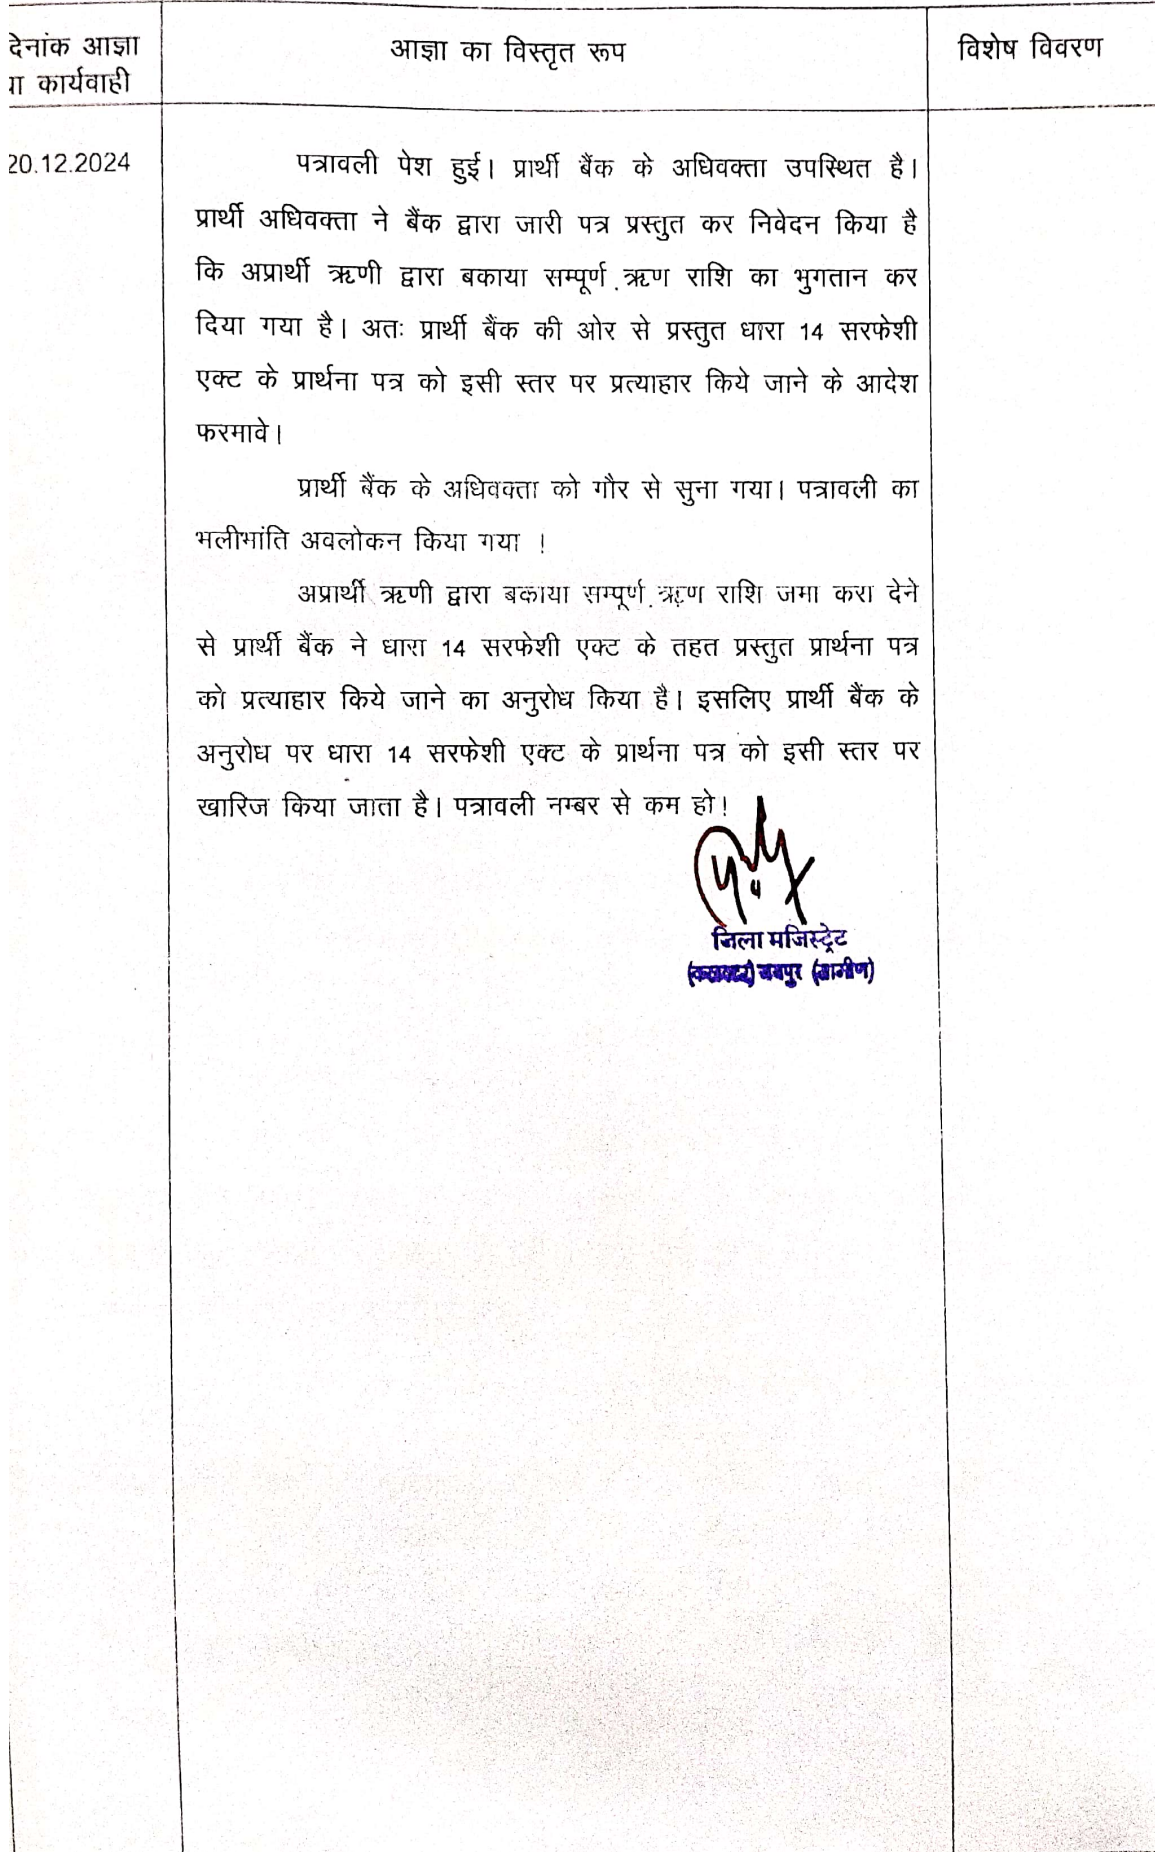 देनांक आज्ञा
या कार्यवाही
आज्ञा का विस्तृत रूप
विशेष विवरण
20.12.2024
पत्रावली पेश हुई। प्रार्थी बैंक के अधिवक्ता उपस्थित है।
प्रार्थी अधिवक्ता ने बैंक द्वारा जारी पत्र प्रस्तुत कर निवेदन किया है
कि अप्रार्थी ऋणी द्वारा बकाया सम्पूर्ण ऋण राशि का भुगतान कर
दिया गया है। अतः प्रार्थी बैंक की ओर से प्रस्तुत धारा 14 सरफेशी
एक्ट के प्रार्थना पत्र को इसी स्तर पर प्रत्याहार किये जाने के आदेश
फरमावे।
प्रार्थी बैंक के अधिवक्ता को गौर से सुना गया। पत्रावली का
भलीभांति अवलोकन किया गया !
अप्रार्थी ऋणी द्वारा बकाया सम्पूर्ण ऋण राशि जमा करा देने
से प्रार्थी बैंक ने धारा 14 सरफेशी एक्ट के तहत प्रस्तुत प्रार्थना पत्र
को प्रत्याहार किये जाने का अनुरोध किया है। इसलिए प्रार्थी बैंक के
अनुरोध पर धारा 14 सरफेशी एक्ट के प्रार्थना पत्र को इसी स्तर पर
खारिज किया जाता है। पत्रावली नम्बर से कम हो!
जिला मजिस्ट्रेट
(कलक्टर) जयपुर (ग्रामीण)